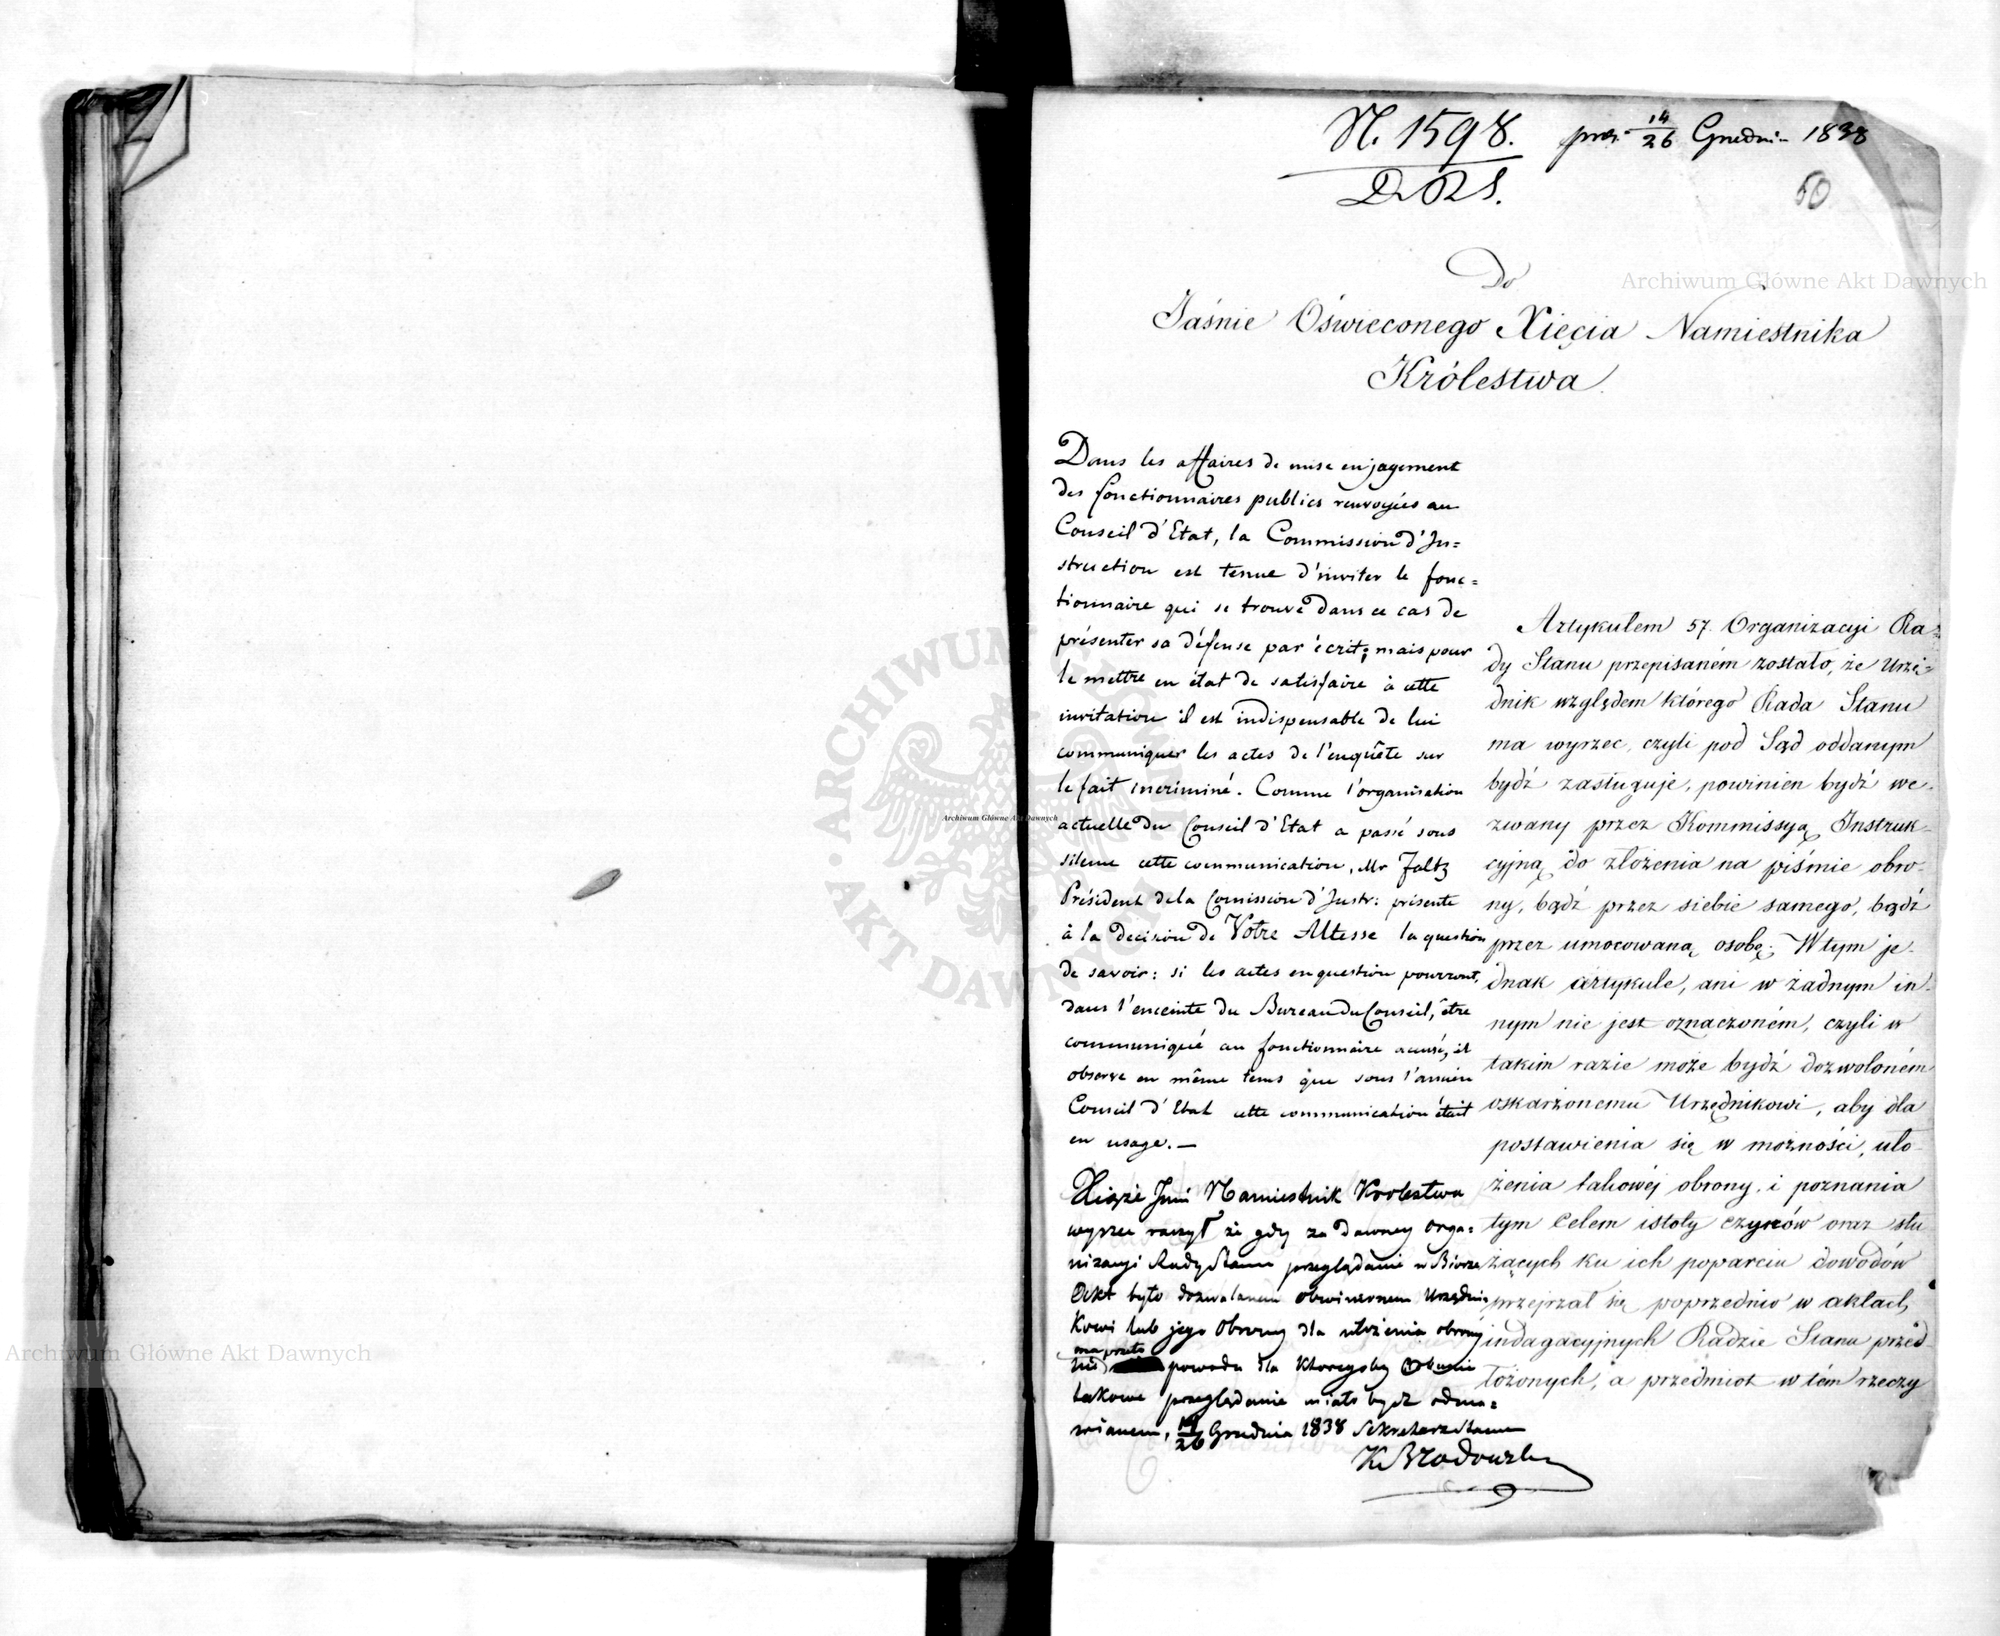 N. 1598. prez. 14/26 Grudnia 1838
D.R.S.
50
Do
Jaśnie Oświeconego Xięcia Namiestnika
Królestwa.
Dans les affaires de mise en jugement
des fonctionnaires publics renvoyées au
Conseil d'Etat, la Commission d'In=
struction est tenue d'inviter le fonc=
tionnaire qui se trouve dans ce cas de
présenter sa défense par écrit; mais pour
le mettre en état de satisfaire à cette
invitation il est indispensable de lui
communiquer les actes de l'enquête sur
le fait incriminé. Comme l'organisation
actuelle du Conseil d'Etat a passé sous
silence cette communication, Mr Faltz
Président de la Comission d'Instr: présente
à la decision de Votre Altesse la question
de savoir: si les actes en question pourront,
dans l'enceinte du Bureau du Conseil, être
communiqué au fonctionnaire accusé, il
observe en même tems que sous l'ancien
Conseil d'Etat cette communication était
en usage. —
Xiąże Jmć Namiestnik Królestwa
wyrzec raczył że gdy za dawney orga=
nizacyi Rady Stanu przeglądanie w Biórze
Akt było dozwalanem obwinionem Urzędni=
kowi lub jego Obrońcy dla ułożenia obrony
ma przeto
nie powodu dla któregoby obecnie
takowe przeglądanie miało bydź odma=
wianem, 14/26 Grudnia 1838 Sekretarz Stanu
K Brzodowski
Artykułem 57. Organizacyi Ra=
dy Stanu przepisaném zostało, że Urzę=
dnik względem którego Rada Stanu
ma wyrzec, czyli pod Sąd oddanym
bydź zasługuje, powinien bydź we=
zwany przez Kommissyą Instruk=
cyjną do złożenia na piśmie obro=
ny, bądź przez siebie samego, bądź
przez umocowaną osobę; W tym je=
dnak artykule, ani w żadnym in=
nym nie jest oznaczoném, czyli w
takim razie może bydź dozwoloném
oskarżonemu Urzędnikowi, aby dla
postawienia się w możności, uło=
żenia takowéj obrony, i poznania
tym celem istoty czynów oraz słu
żących ku ich poparciu dowodów
przejrzał się poprzednio w aktach
indagacyjnych Radzie Stanu przed=
łożonych, a przedmiot w tém rzeczy
Archiwum Główne Akt Dawnych
Archiwum Główne Akt Dawnych
Archiwum Główne Akt Dawnych
ARCHIWUM GŁÓWNE AKT DAWNYCH